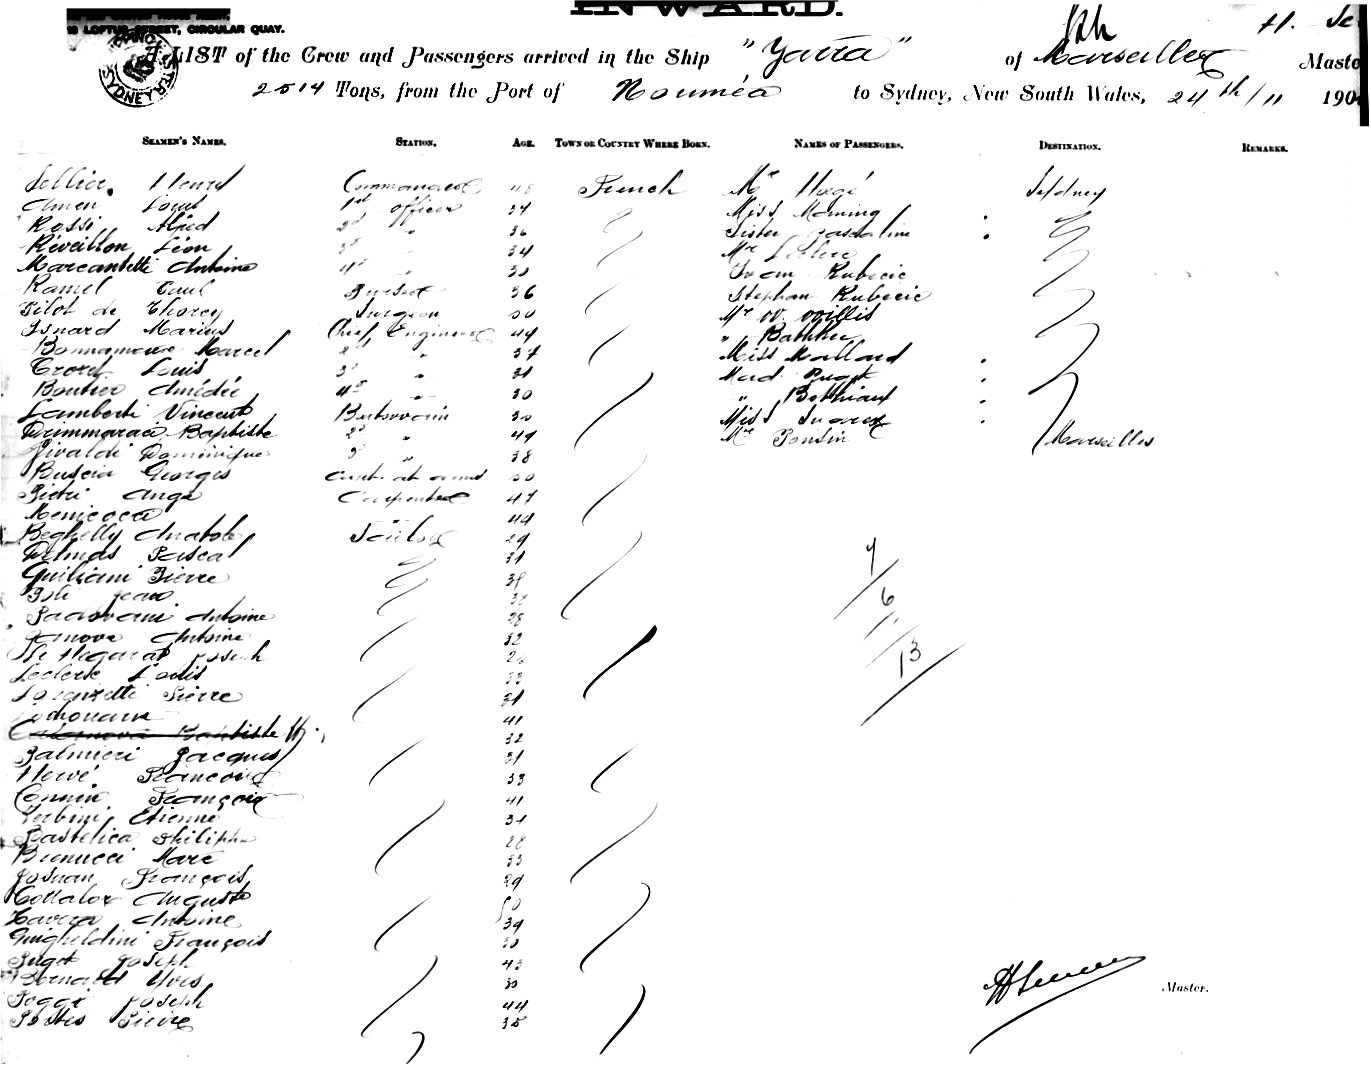 INWARD.
LOFTUS STREET, CIRCULAR QUAY.
LIST of the Crew and Passengers arrived in the Ship "Yarra" of Marseilles Maste
2514 Tons, from the Port of Nouméa to Sydney, New South Wales, 24th/11 190
SEAMEN'S NAMES. STATION. AGE. TOWN OR COUNTRY WHERE BORN. NAMES OF PASSENGERS. DESTINATION. REMARKS.
Sellier Henri Commander 48 French Mr Hagé Sydney
Amen Louis 1st officer 34 Miss Manning
Rossi Alfred 2d " 36 Sister Pascaline
Réveillon Léon 3d " 34 Mr Leclerc
Marcantetti Antoine 4d " 30 Ivan Rubecic
Ramel Paul Purser 36 Stephan Rubecic
Pilot de Thorey Surgeon 30 Mr W. Willis
Isnard Marius Chief Engineer 49 "
Bonnamour Marcel 2d " 37 Miss Mallard
Crozet Louis 3d " 31 Mad Puget
Boutier Amédée 4d " 30 " Bothiaux
Lamberti Vincent 30 Miss Suarez
Baptiste 2d " 49 Mr Ponsin Marseilles
Rivaldi Dominique 3d " 38
Buscia Georges at arms 30
Pietri Ange Carpenter 47
Menicocci " 49
Beghelly Anatole Sailor 29
Delmas Pascal 31
Guiliani Pierre 39
Poli Jean 38
Padovani Antoine 28
Canova Antoine 32
Le Hegarat Joseph
Leclerc Louis 33
Lorenzetti Pierre 31
41
Casanova Baptiste 32
Palmieri Jacques 31
Hervé François 33
Connin François 41
Zerbini Etienne 31
Bastelica Philippe 28
Bionucci Marc 33
Josnan François 29
Auguste 50
Tavera Antoine 39
Guigheldini François 30
Puget Joseph 43
Bernard Yves 30
Poggi Joseph 44
Portes Pierre 35
7
6
13
Master.